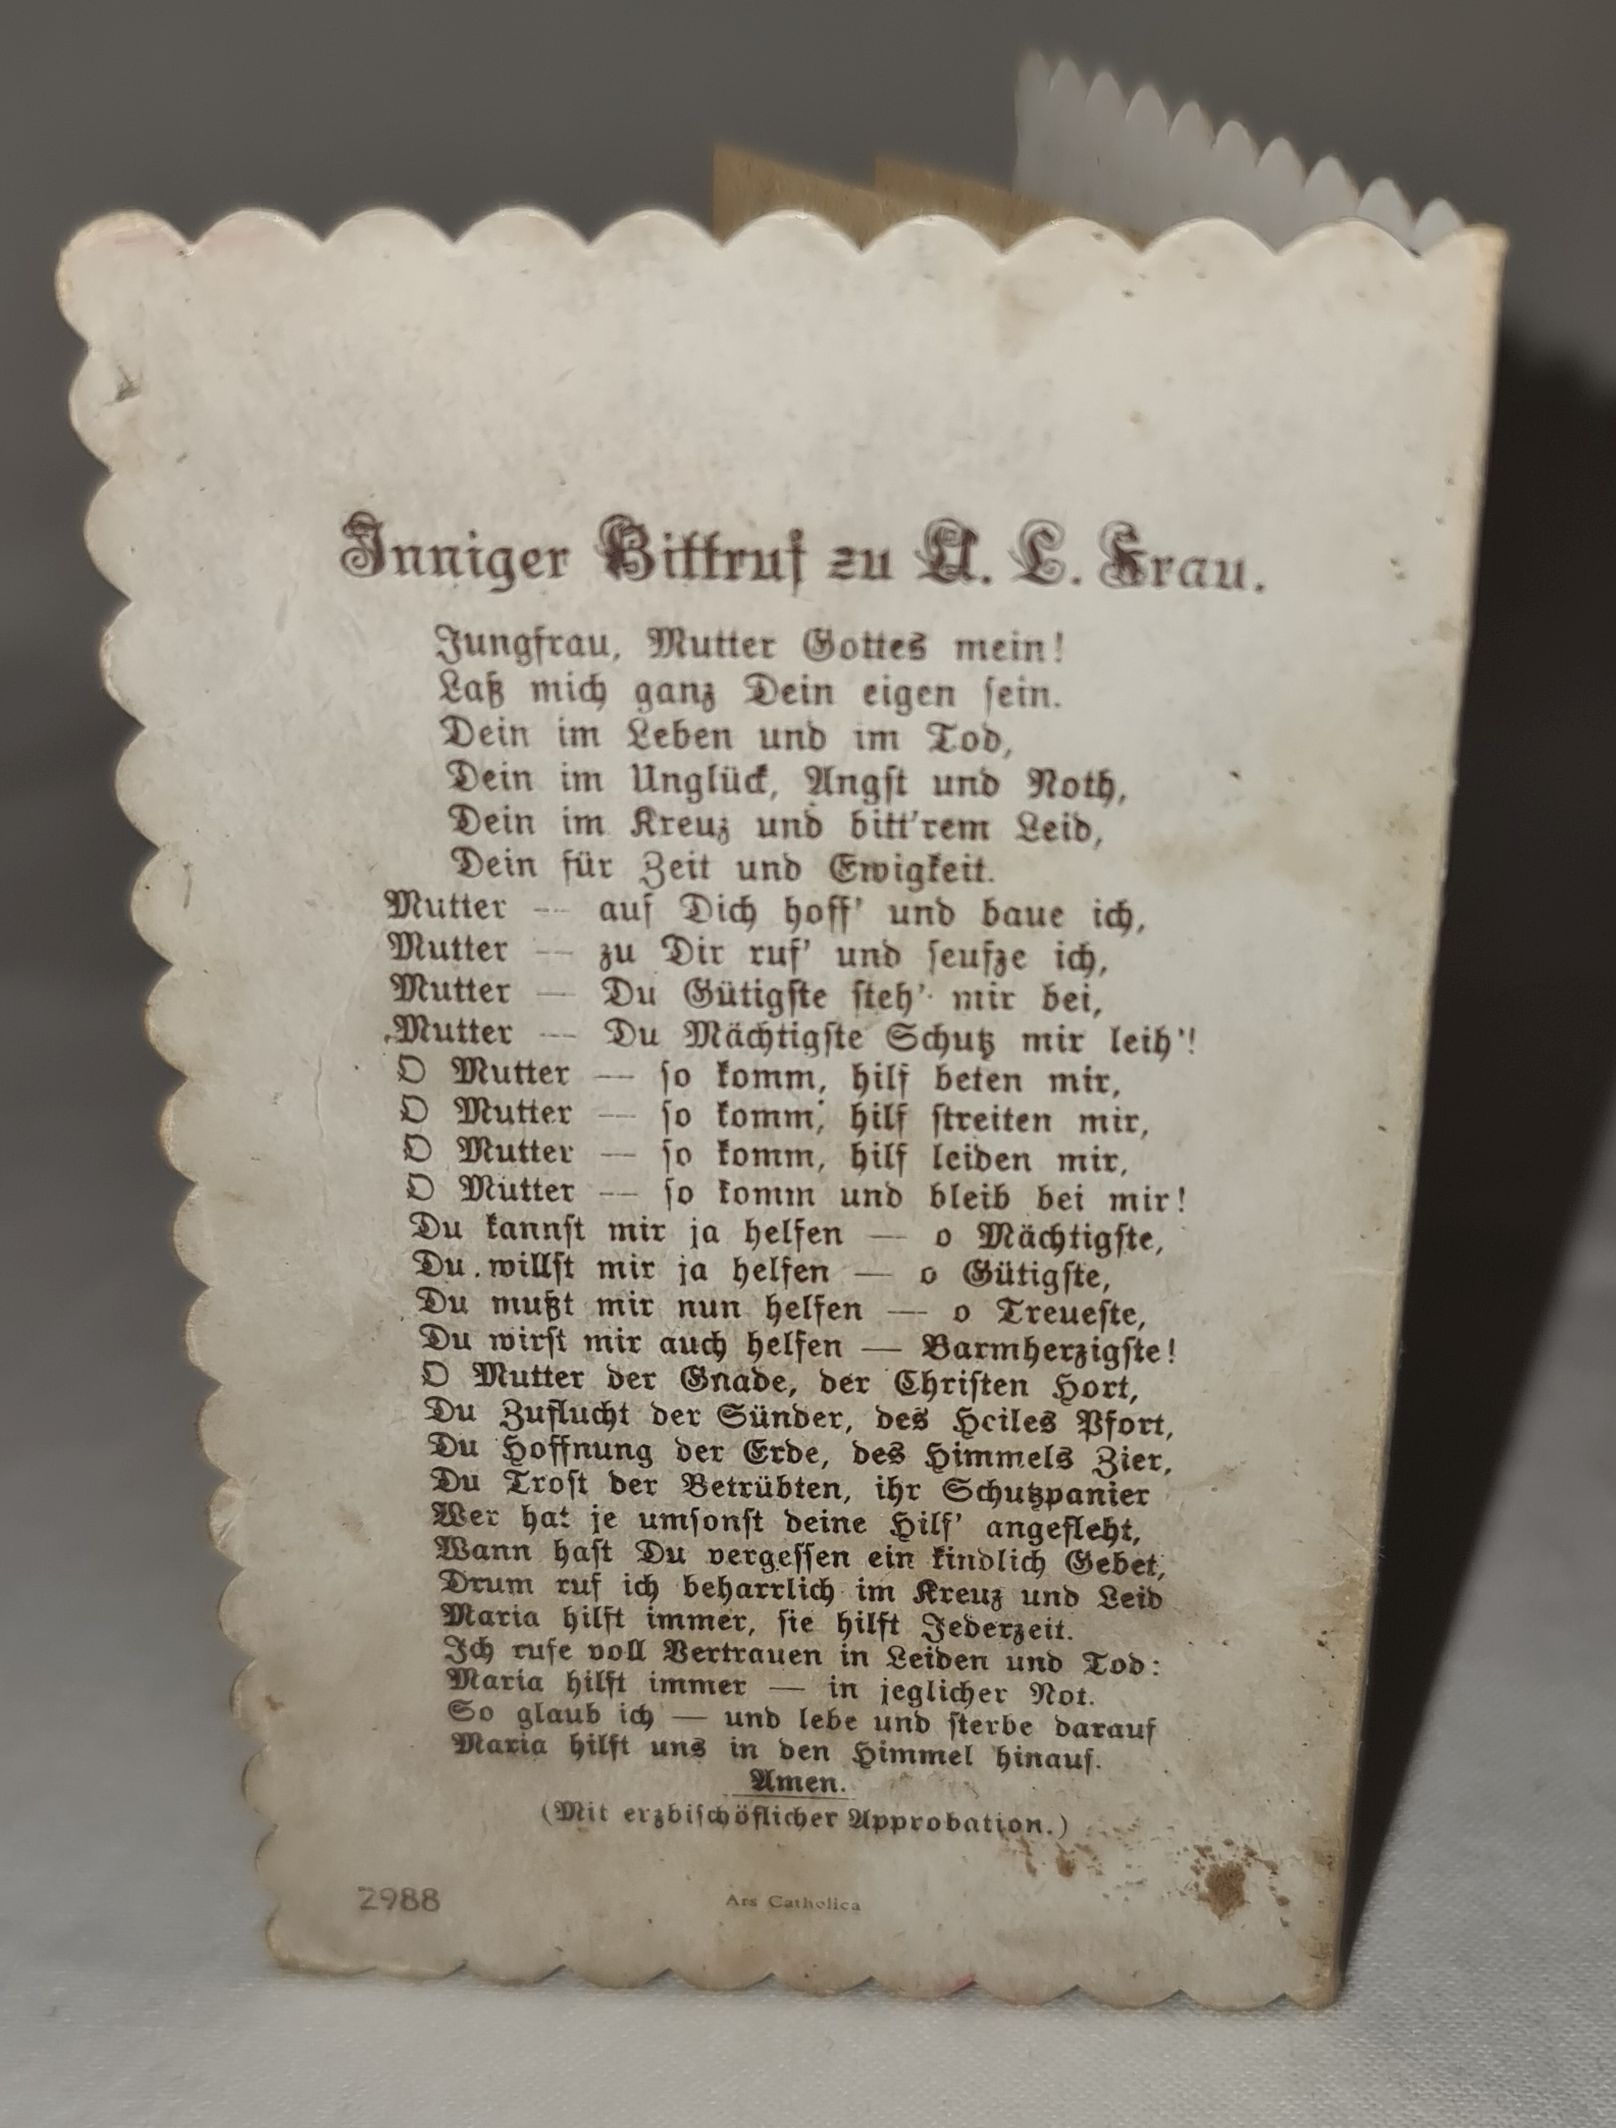 Inniger Bittruf zu U. L. Frau.
Jungfrau, Mutter Gottes mein!
Laß mich ganz Dein eigen sein.
Dein im Leben und im Tod,
Dein im Unglück, Angst und Noth,
Dein im Kreuz und bitt'rem Leid,
Dein für Zeit und Ewigkeit.
Mutter — auf Dich hoff' und baue ich,
Mutter — zu Dir ruf' und seufze ich,
Mutter — Du Gütigste steh' mir bei,
Mutter — Du Mächtigste Schutz mir leih'!
O Mutter — so komm, hilf beten mir,
O Mutter — so komm, hilf streiten mir,
O Mutter — so komm, hilf leiden mir,
O Mutter — so komm und bleib bei mir!
Du kannst mir ja helfen — o Mächtigste,
Du willst mir ja helfen — o Gütigste,
Du mußt mir nun helfen — o Treueste,
Du wirst mir auch helfen — Barmherzigste!
O Mutter der Gnade, der Christen Hort,
Du Zuflucht der Sünder, des Heiles Pfort,
Du Hoffnung der Erde, des Himmels Zier,
Du Trost der Betrübten, ihr Schutzpanier
Wer hat je umsonst deine Hilf' angefleht,
Wann hast Du vergessen ein kindlich Gebet,
Drum ruf ich beharrlich im Kreuz und Leid
Maria hilft immer, sie hilft Jederzeit.
Ich rufe voll Vertrauen in Leiden und Tod:
Maria hilft immer — in jeglicher Not.
So glaub ich — und lebe und sterbe darauf
Maria hilft uns in den Himmel hinauf.
Amen.
(Mit erzbischöflicher Approbation.)
2988 Ars Catholica